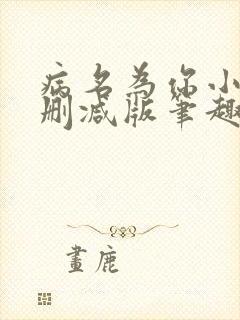 病名为你小
删减版笔趣
畫鹿